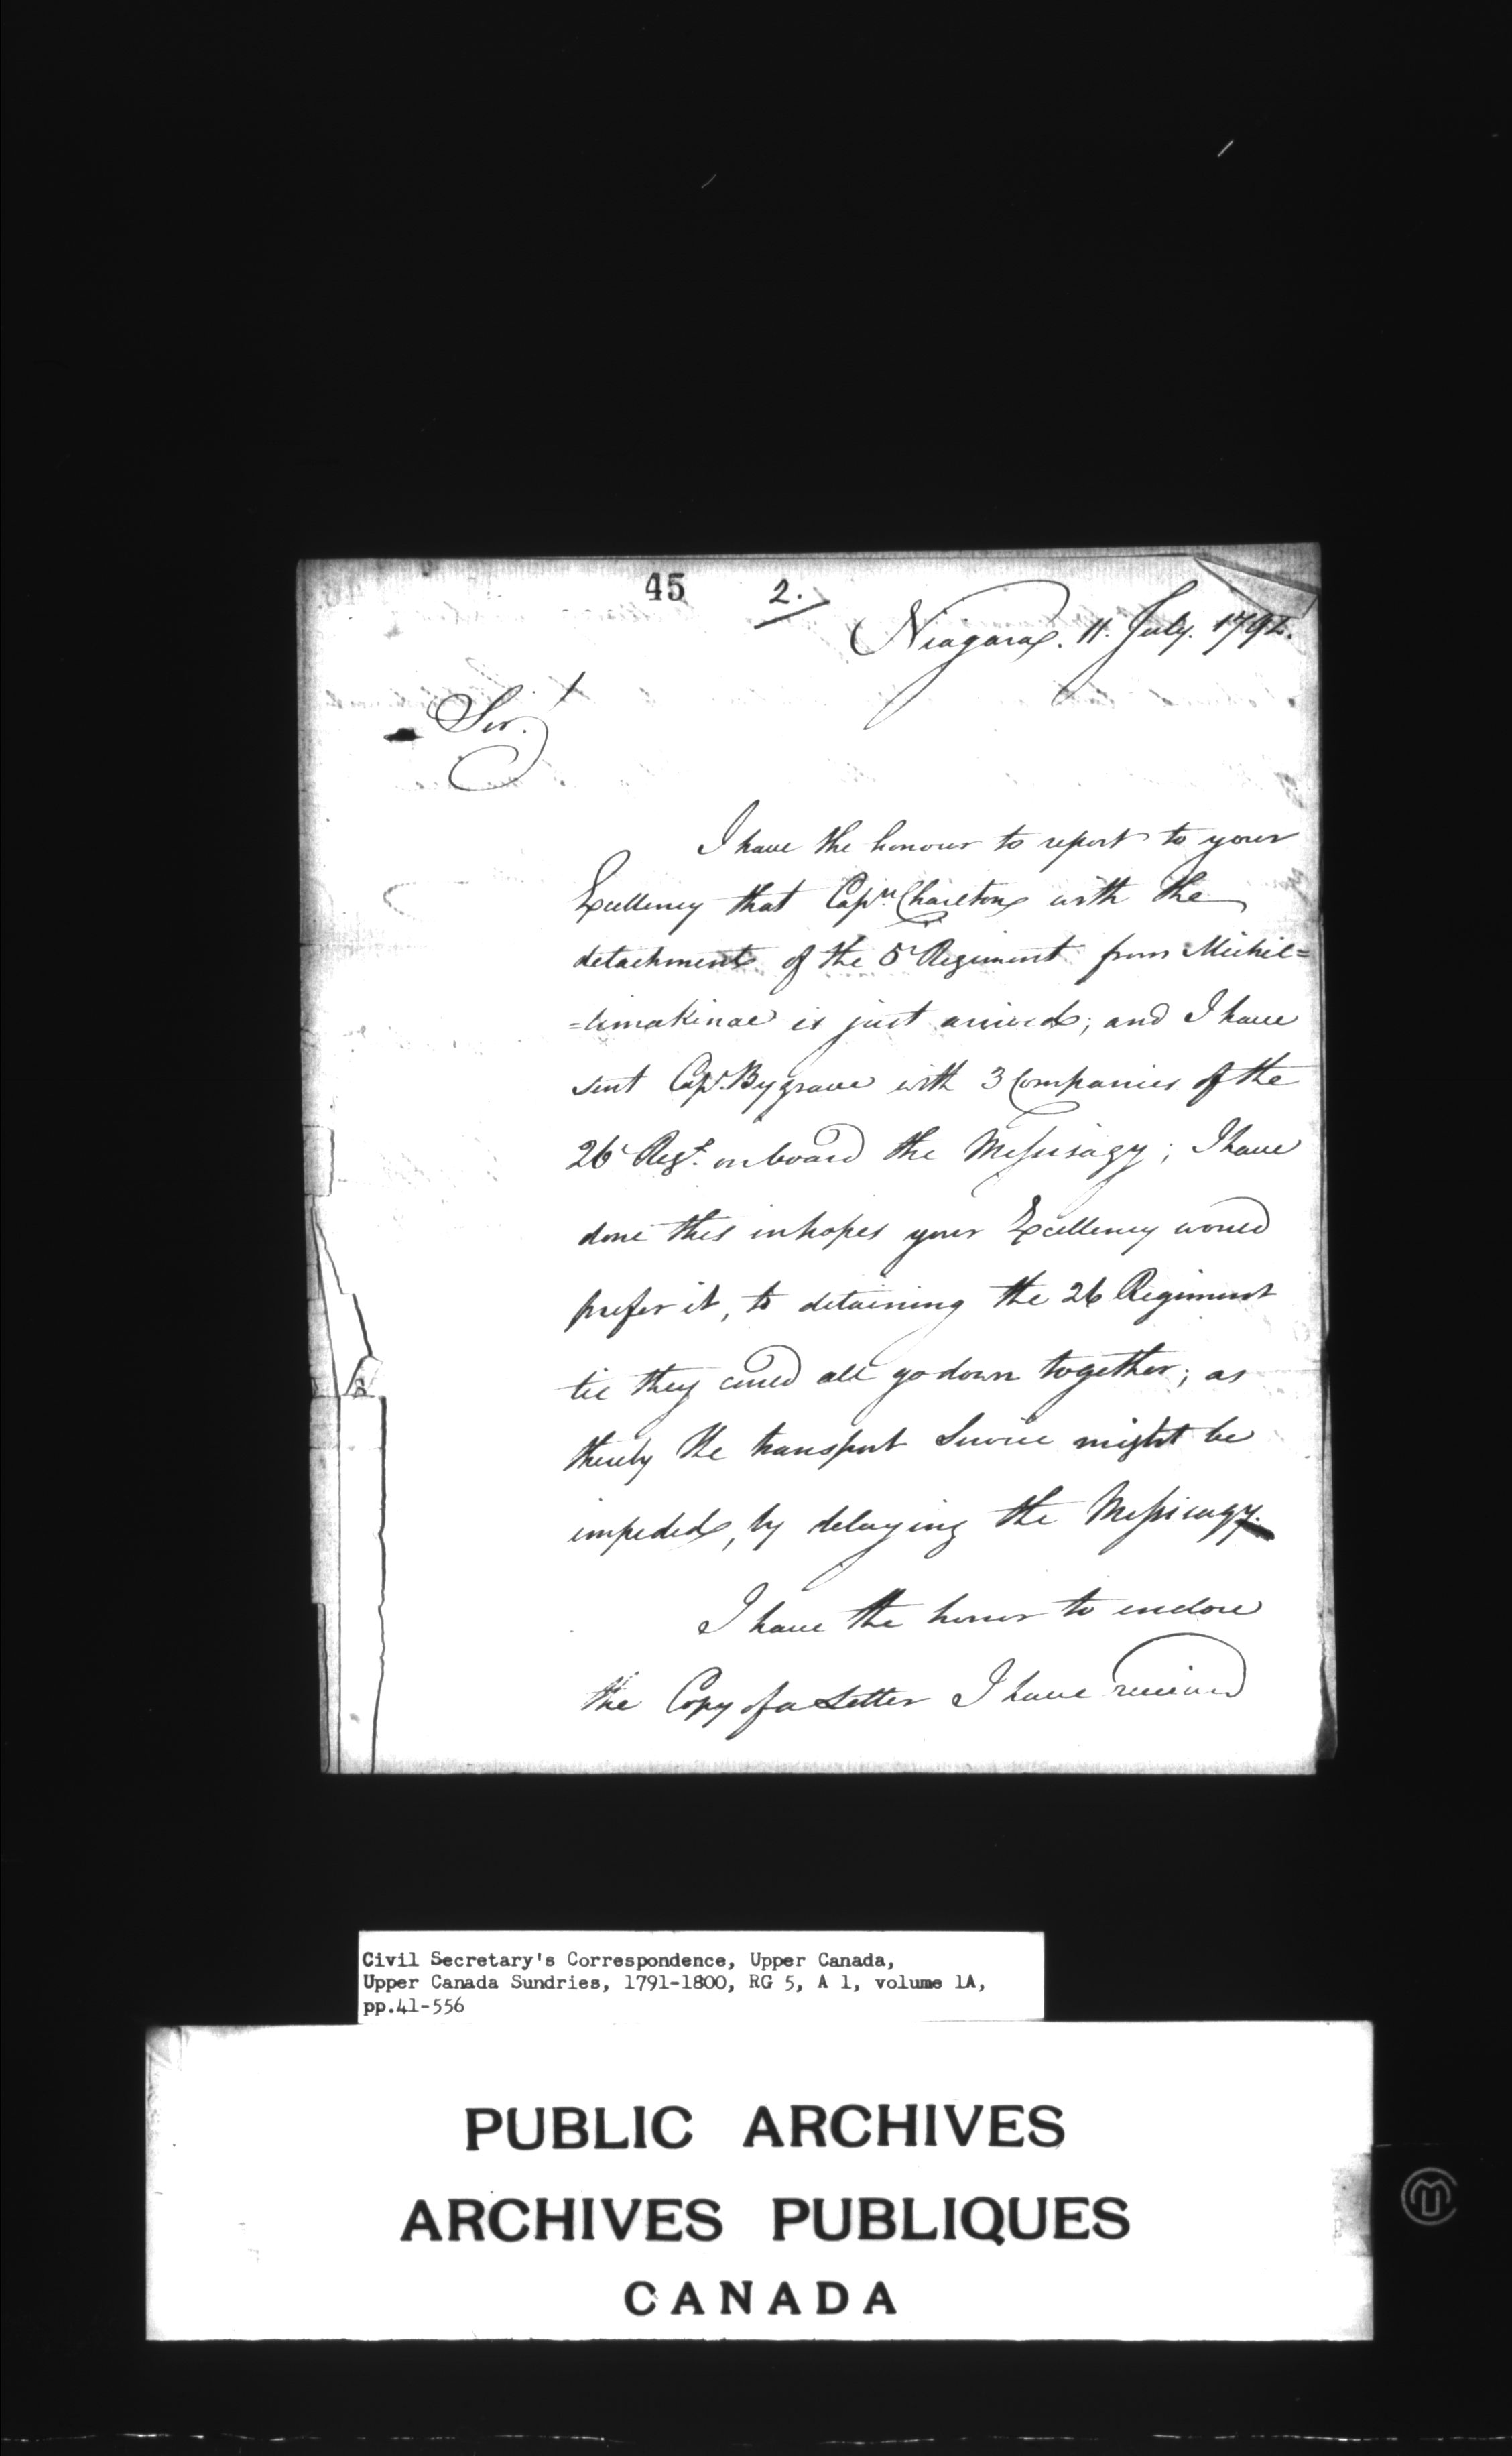 45 2.
Niagara. 11. July. 1792.
Sir.
I have the honour to report to your
Excellency that Capn. Charlton with the
detachment of the 5 Regiment from Michil=
=limakinac is just arrived; and I have
sent Capt. Bygrave with 3 Companies of the
26 Regt. on board the Messisagy; I have
done this in hopes your Excellency would
prefer it, to detaining the 26 Regiment
till they could all go down together; as
thereby the transport Service might be
impeded, by delaying the Messisagy.
I have the honor to enclose
the Copy of a Letter I have received
Civil Secretary's Correspondence, Upper Canada,
Upper Canada Sundries, 1791-1800, RG 5, A 1, volume 1A,
pp.41-556
PUBLIC ARCHIVES
ARCHIVES PUBLIQUES
CANADA